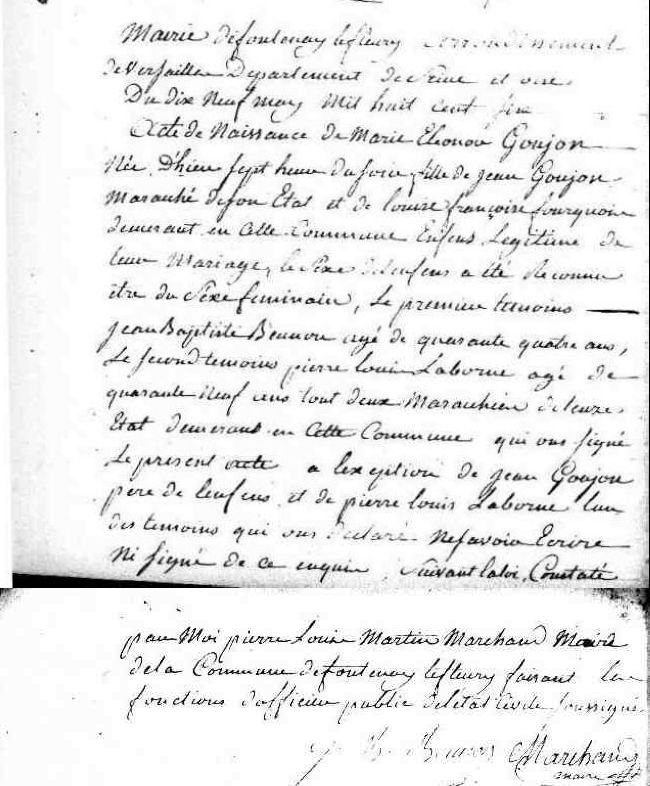 Mairie defontenay lefleury arrondissement
de Versaille Departement de Seine et oise
Du dix Neuf may Mil huit cent six
Acte de Naissance de Marie Eleonor Goujon
Née D'hier sept heure du soir fille de jean Goujon
Maraiché deson Etat et de louise françoise fourquoin
demerant en Cette Commune Enfens Legitime de
leur Mariage, le Sexe delenfens a été Reconnu
être du Sexe feminain, Le premier temoins
jean Baptiste Beauvou agé de quarante quatre ans,
Le Second temoins pierre louis Laborne agé de
quarante Neuf ans tout deux Maraichier de leurs
Etat demerant en Cette Commune qui ons signé
Le present acte a lexception de jean Goujon
pere de lenfens et de pierre louis Laborne lun
des temoins qui ons declaré Nesavoir Ecrire
Ni signé de ce enquir suivant laloi, Constaté
par Moi pierre Louis Martin Marchand Maire
dela Commune defontenay lefleury faisant les
fonctions dofficier public deletat Civile soussigné
Marchand
maire